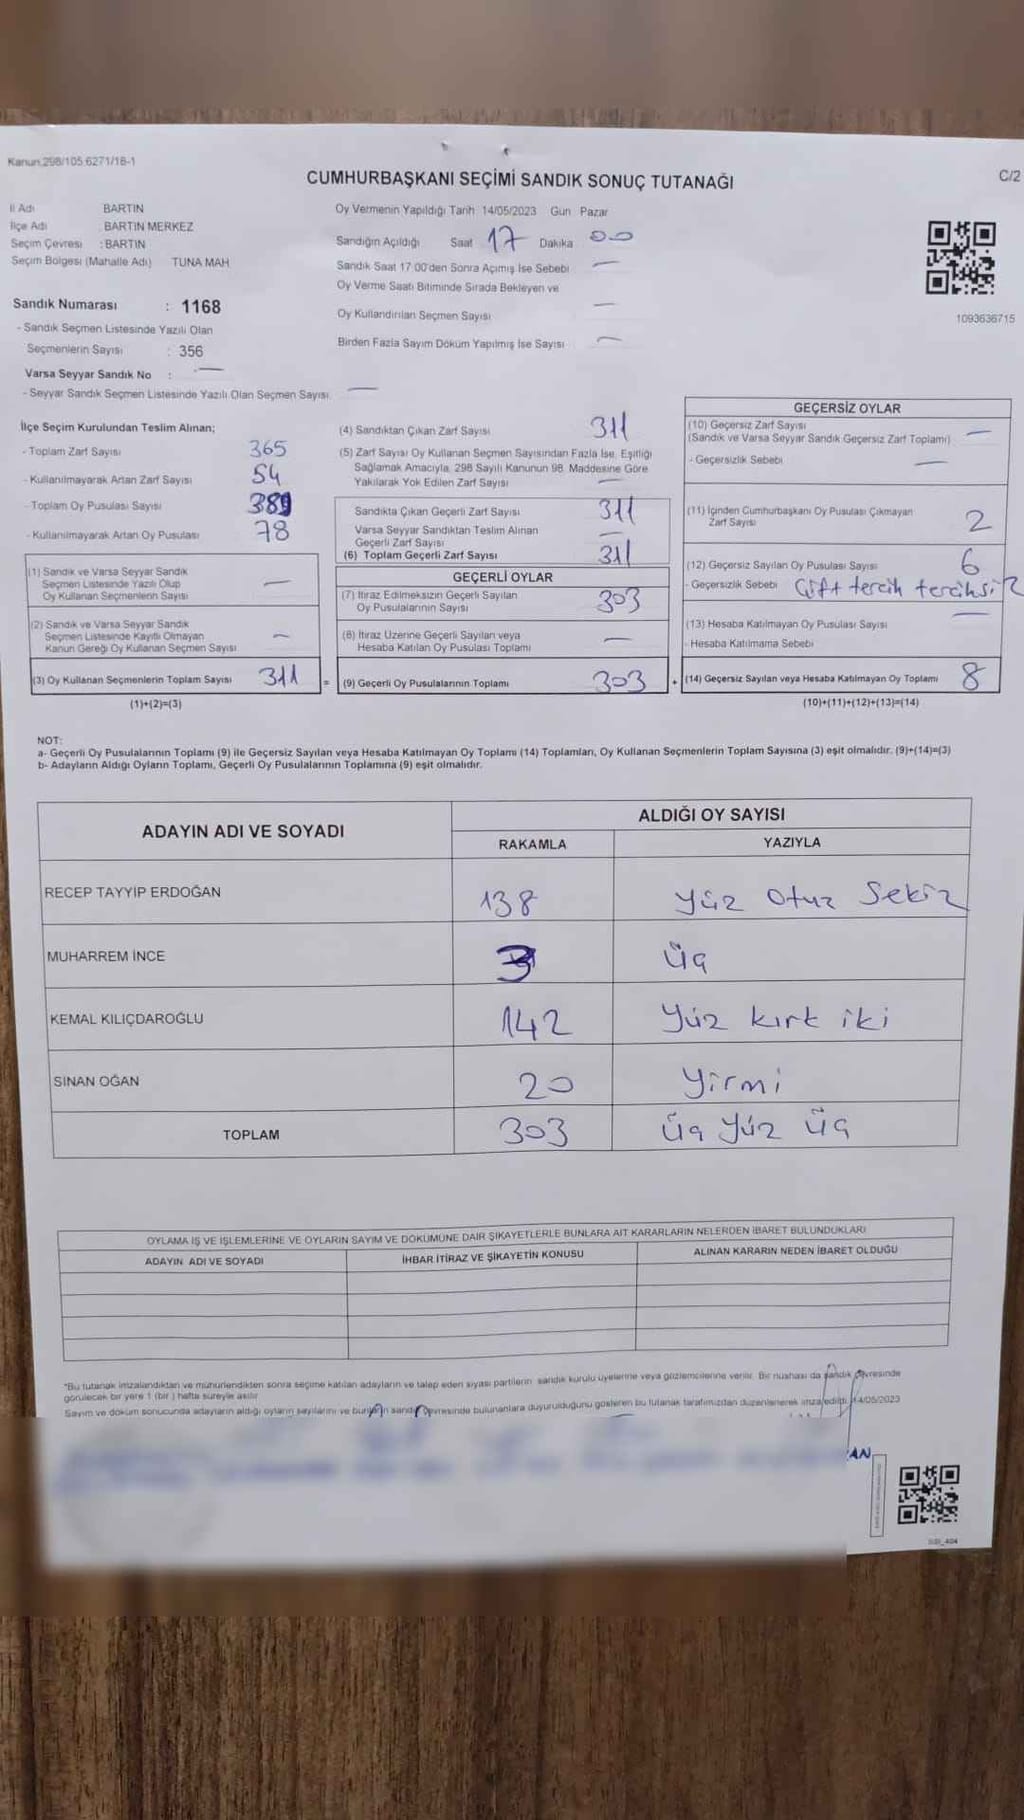 Kanun.298/105 6271/18-1
C/2
CUMHURBAŞKANI SEÇİMİ SANDIK SONUÇ TUTANAĞI
İl Adı : BARTIN
İlçe Adı : BARTIN MERKEZ
Seçim Çevresi : BARTIN
Seçim Bölgesi (Mahalle Adı) TUNA MAH
Sandık Numarası : 1168
- Sandık Seçmen Listesinde Yazılı Olan
Seçmenlerin Sayısı : 356
Varsa Seyyar Sandık No : —
- Seyyar Sandık Seçmen Listesinde Yazılı Olan Seçmen Sayısı —
Oy Vermenin Yapıldığı Tarih 14/05/2023 Gün Pazar
Sandığın Açıldığı Saat 17 Dakika 00
Sandık Saat 17:00'den Sonra Açımış İse Sebebi —
Oy Verme Saati Bitiminde Sırada Bekleyen ve
Oy Kullandırılan Seçmen Sayısı —
Birden Fazla Sayım Döküm Yapılmış İse Sayısı —
1093636715
İlçe Seçim Kurulundan Teslim Alınan;
- Toplam Zarf Sayısı 365
- Kullanılmayarak Artan Zarf Sayısı 54
- Toplam Oy Pusulası Sayısı 389
- Kullanılmayarak Artan Oy Pusulası 78
(1) Sandık ve Varsa Seyyar Sandık
Seçmen Listesinde Yazılı Olup
Oy Kullanan Seçmenlerin Sayısı —
(2) Sandık ve Varsa Seyyar Sandık
Seçmen Listesinde Kayıtlı Olmayan
Kanun Gereği Oy Kullanan Seçmen Sayısı —
(3) Oy Kullanan Seçmenlerin Toplam Sayısı 311 =
(1)+(2)=(3)
(4) Sandıktan Çıkan Zarf Sayısı 311
(5) Zarf Sayısı Oy Kullanan Seçmen Sayısından Fazla İse, Eşitliği
Sağlamak Amacıyla, 298 Sayılı Kanunun 98. Maddesine Göre
Yakılarak Yok Edilen Zarf Sayısı —
Sandıkta Çıkan Geçerli Zarf Sayısı 311
Varsa Seyyar Sandıktan Teslim Alınan
Geçerli Zarf Sayısı —
(6) Toplam Geçerli Zarf Sayısı 311
GEÇERLİ OYLAR
(7) İtiraz Edilmeksizin Geçerli Sayılan
Oy Pusulalarının Sayısı 303
(8) İtiraz Üzerine Geçerli Sayılan veya
Hesaba Katılan Oy Pusulası Toplamı —
(9) Geçerli Oy Pusulalarının Toplamı 303 +
GEÇERSİZ OYLAR
(10) Geçersiz Zarf Sayısı
(Sandık ve Varsa Seyyar Sandık Geçersiz Zarf Toplamı) —
- Geçersizlik Sebebi —
(11) İçinden Cumhurbaşkanı Oy Pusulası Çıkmayan
Zarf Sayısı 2
(12) Geçersiz Sayılan Oy Pusulası Sayısı 6
- Geçersizlik Sebebi Çift tercih tercihsiz
(13) Hesaba Katılmayan Oy Pusulası Sayısı —
- Hesaba Katılmama Sebebi
(14) Geçersiz Sayılan veya Hesaba Katılmayan Oy Toplamı 8
(10)+(11)+(12)+(13)=(14)
NOT:
a- Geçerli Oy Pusulalarının Toplamı (9) ile Geçersiz Sayılan veya Hesaba Katılmayan Oy Toplamı (14) Toplamları, Oy Kullanan Seçmenlerin Toplam Sayısına (3) eşit olmalıdır. (9)+(14)=(3)
b- Adayların Aldığı Oyların Toplamı, Geçerli Oy Pusulalarının Toplamına (9) eşit olmalıdır.
ADAYIN ADI VE SOYADI ALDIĞI OY SAYISI
RAKAMLA YAZIYLA
RECEP TAYYİP ERDOĞAN 138 Yüz Otuz Sekiz
MUHARREM İNCE 3 Üç
KEMAL KILIÇDAROĞLU 142 Yüz kırk iki
SİNAN OĞAN 20 Yirmi
TOPLAM 303 Üç Yüz Üç
OYLAMA İŞ VE İŞLEMLERİNE VE OYLARIN SAYIM VE DÖKÜMÜNE DAİR ŞİKAYETLERLE BUNLARA AİT KARARLARIN NELERDEN İBARET BULUNDUKLARI
ADAYIN ADI VE SOYADI İHBAR İTİRAZ VE ŞİKAYETİN KONUSU ALINAN KARARIN NEDEN İBARET OLDUĞU
*Bu tutanak imzalandıktan ve mühürlendikten sonra seçime katılan adayların ve talep eden siyasi partilerin sandık kurulu üyelerine veya gözlemcilerine verilir. Bir nüshası da sandık çevresinde
görülecek bir yere 1 (bir ) hafta süreyle asılır.
Sayım ve döküm sonucunda adayların aldığı oyların sayılarını ve bunların sandık çevresinde bulunanlara duyurulduğunu gösteren bu tutanak tarafımızdan düzenlenerek imza edildi. 14/05/2023
AN